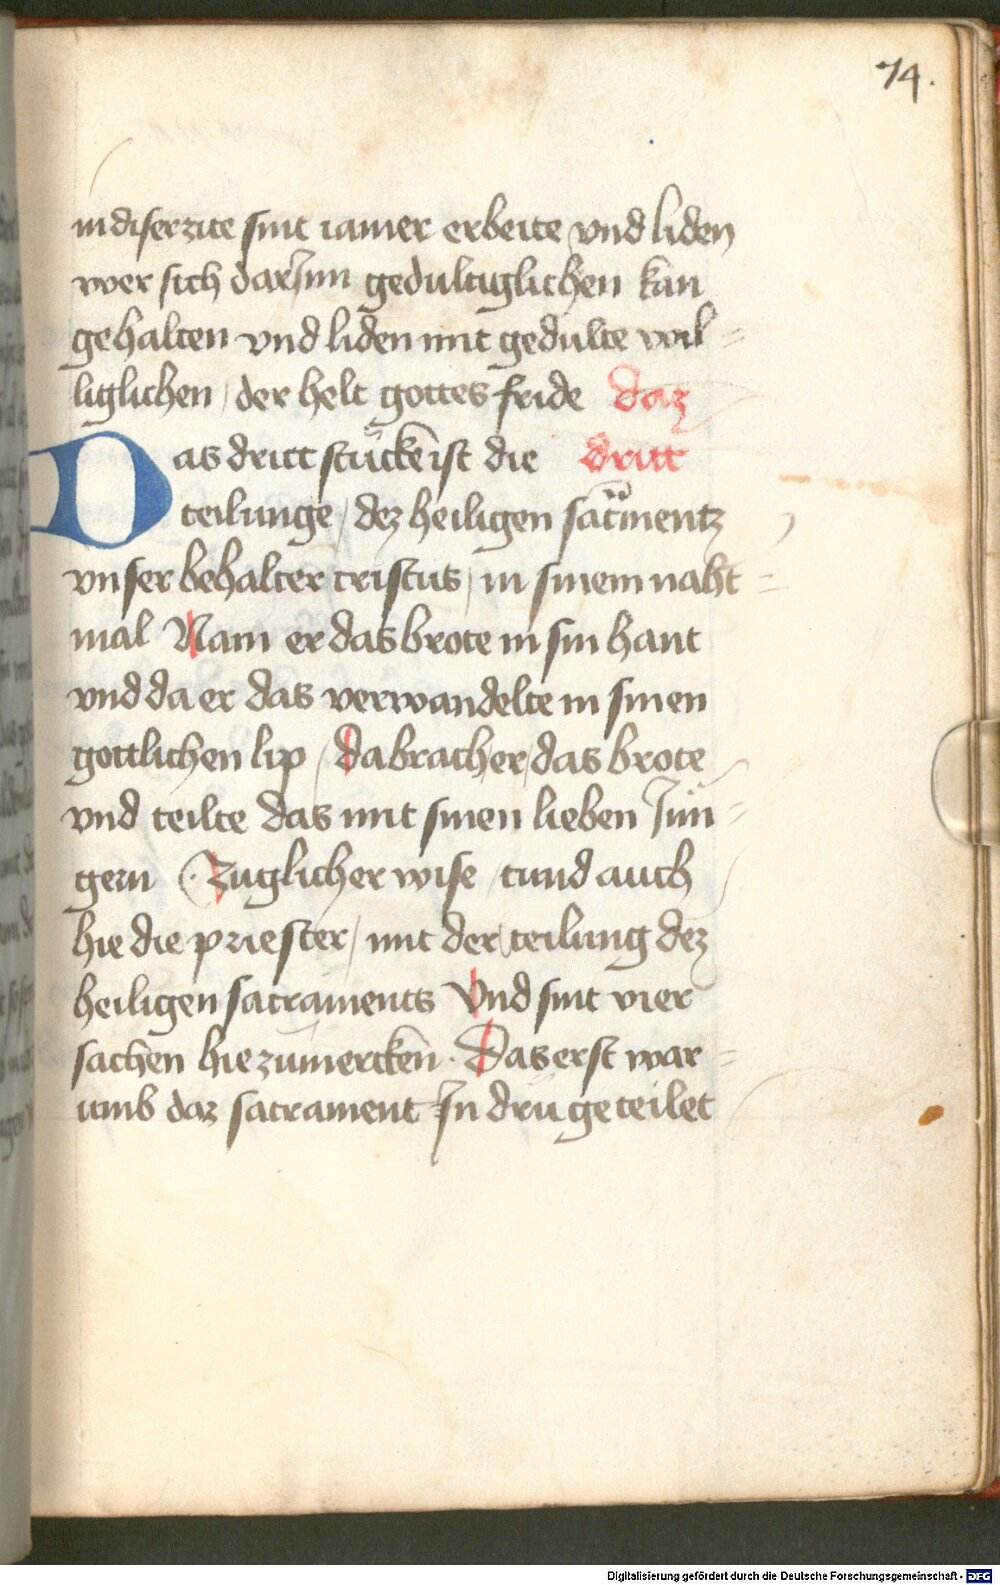 74.
in diser zite sint iamer erbeite vnd liden
wer sich dar Jnn gedultiglichen kan
gehalten vnd liden mit gedulte wil=
liglichen / der helt gottes fride daz
Das dritt stücke ist die dritt
teilunge / dez heiligen sacmentz
vnser behalter cristus / in sinem naht=
mal Nam er das brote in sin hant
vnd da er das verwandelte in sinen
gottlichen lip / da brach er / das brote
vnd teilte das mit sinen lieben Jün=
gern · Zuglicher wise / tund auch
hie die priester / mit der teilung dez
heiligen sacraments Vnd sint vier
sachen hie zu mercken · Das erst war=
umb daz sacrament Jn drü geteilet
Digitalisierung gefördert durch die Deutsche Forschungsgemeinschaft - DFG